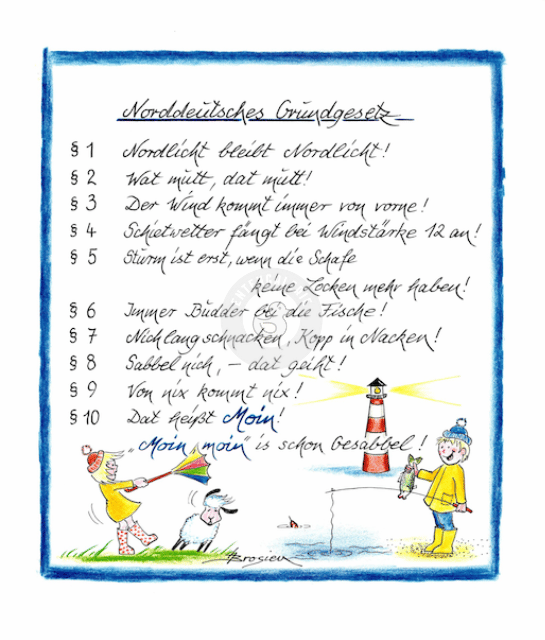 Norddeutsches Grundgesetz
§ 1 Nordlicht bleibt Nordlicht!
§ 2 Wat mutt, dat mutt!
§ 3 Der Wind kommt immer von vorne!
§ 4 Schietwetter fängt bei Windstärke 12 an!
§ 5 Sturm ist erst, wenn die Schafe
keine Locken mehr haben!
§ 6 Immer Budder bei die Fische!
§ 7 Nich lang schnacken, Kopp in Nacken!
§ 8 Sabbel nich, – dat geiht!
§ 9 Von nix kommt nix!
§ 10 Dat heißt Moin!
„Moin, moin“ is schon Gesabbel!
Brosien